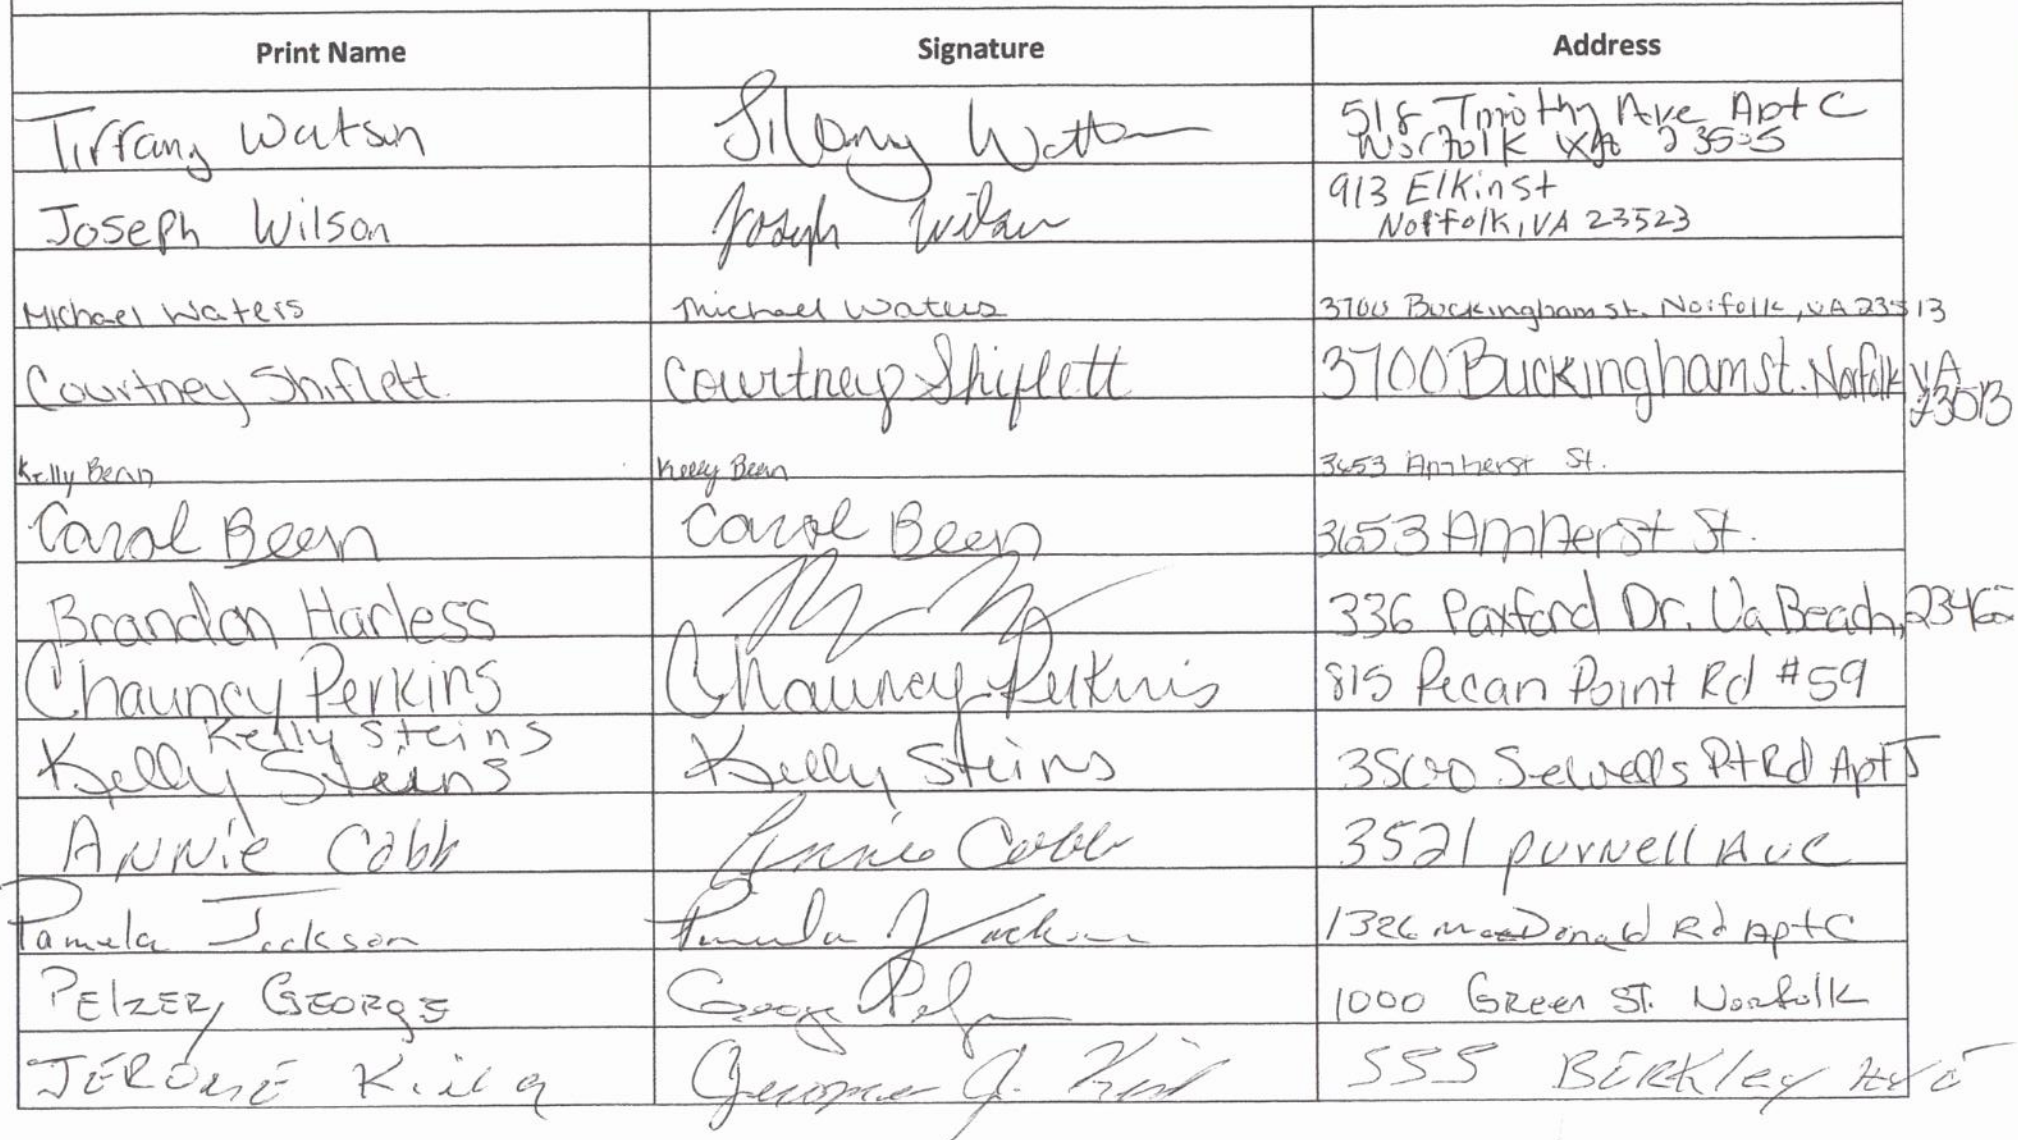 Print Name Signature Address
Tiffany Watson Tiffany Watson 518 Timothy Ave Apt C
Norfolk VA 23505
Joseph Wilson Joseph Wilson 913 Elkin St
Norfolk, VA 23523
Michael Waters Michael Waters 3700 Buckingham St. Norfolk, VA 23513
Courtney Shiflett Courtney Shiflett 3700 Buckingham St. Norfolk VA
23513
Kelly Bean Kelly Bean 3653 Amherst St.
Carol Bean Carol Bean 3653 Amherst St.
Brandon Harless 336 Paxford Dr. Va Beach, 23462
Chauncy Perkins Chauncey Perkins 815 Pecan Point Rd #59
Kelly Steins
Kelly Steins Kelly Steins 3500 Sewells Pt Rd Apt J
Annie Cobb Annie Cobb 3521 Purnell Ave
Pamela Jackson Pamela Jackson 1326 MacDonald Rd Apt C
Pelzer, George George Pelzer 1000 Green St. Norfolk
Jerome King Jerome J. King 555 Berkley Ave